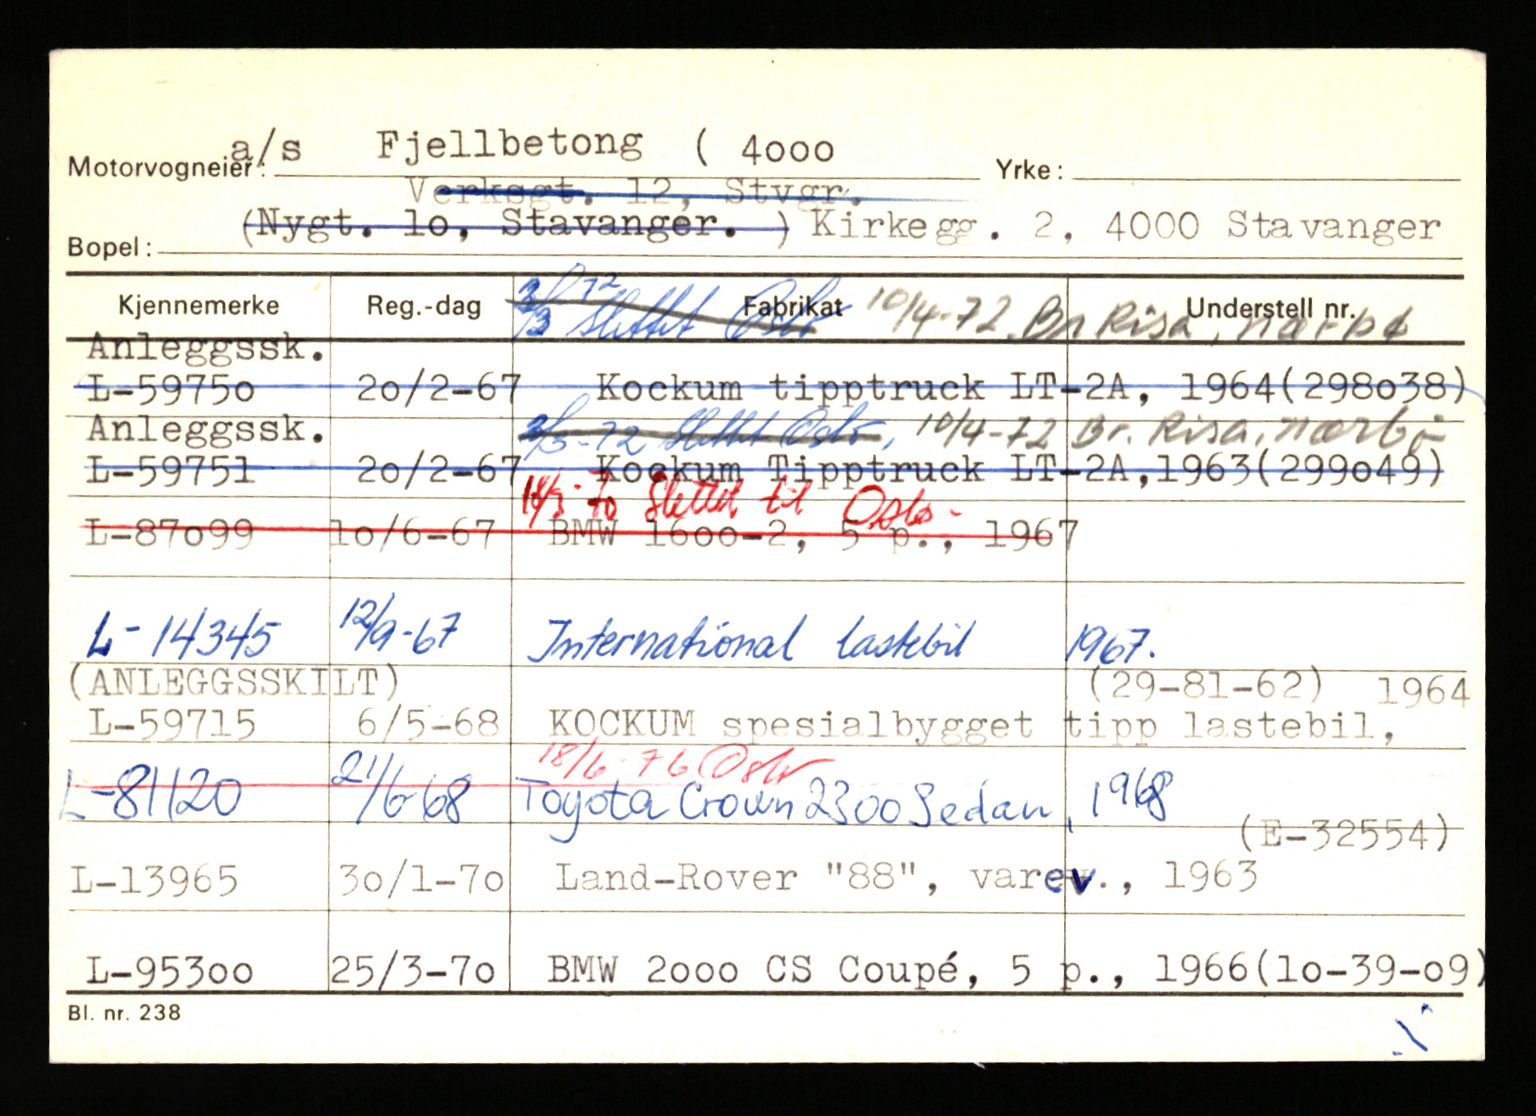 a/s Fjellbetong ( 4ooo
Motorvogneier: Yrke:
Verksgt. 12, Stvgr.
(Nygt. 1o, Stavanger. ) Kirkegg. 2, 4000 Stavanger
Bopel:
Kjennemerke Reg.-dag Fabrikat Understell nr.
3/3 72 Slettet Oslo 10/4-72 Br Risa, nærbø
Anleggssk.
L-5975o 2o/2-67 Kockum tipptruck LT-2A, 1964(298o38)
Anleggssk. 3/3-72 Slettet Oslo, 10/4-72 Br. Risa, nærbø
L-59751 2o/2-67 Kockum Tipptruck LT-2A,1963(299o49)
18/3-70 Slettet til Oslo-
L-87o99 1o/6-67 BMW 16oo-2, 5 p., 1967
L-14345 12/9-67 International lastebil 1967.
(ANLEGGSSKILT) (29-81-62) 1964
L-59715 6/5-68 KOCKUM spesialbygget tipp lastebil,
18/6-76 Oslo
L-81120 21/6-68 Toyota Crown 2300 Sedan, 1968
(E-32554)
L-13965 3o/1-7o Land-Rover "88", varev., 1963
L-953oo 25/3-7o BMW 2ooo CS Coupé, 5 p., 1966(1o-39-o9)
Bl. nr. 238